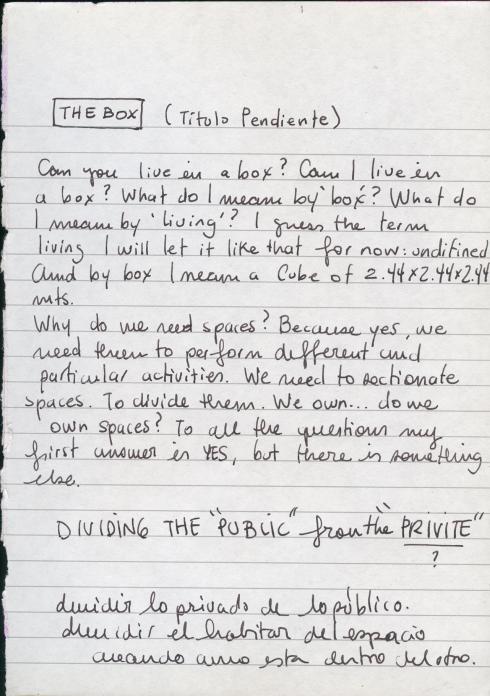 THE BOX (Título Pendiente)
Can you live in a box? Can I live in
a box? What do I mean by 'box'? What do
I mean by 'living'? I guess the term
living I will let it like that for now: undifined
And by box I mean a Cube of 2.44x2.44x2.44
mts.
Why do we need spaces? Because yes, we
need them to perform different and
particular activities. We need to sectionate
spaces. To divide them. We own... do we
own spaces? To all the questions my
first answer is YES, but there is something
else.
DIVIDING THE "PUBLIC" from the "PRIVITE"
?
dividir lo privado de lo público.
dividir el habitar del espacio
cuando uno esta dentro del otro.